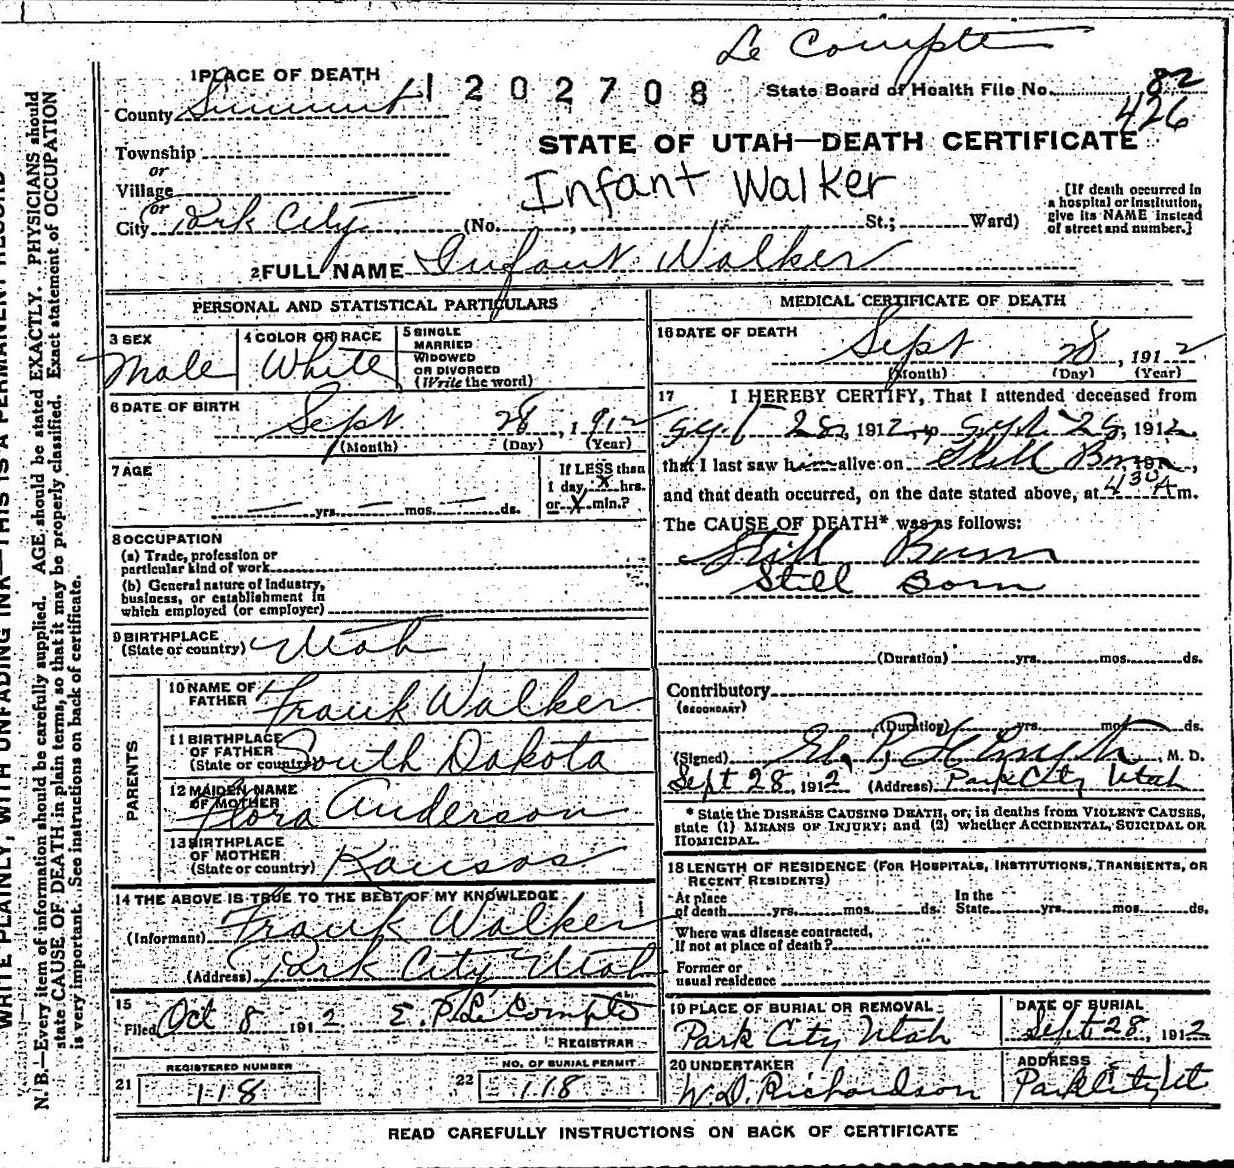 Le Compte
1 PLACE OF DEATH
1202708
State Board of Health File No. 82
426
County Summit
STATE OF UTAH—DEATH CERTIFICATE
Township
or
Village
or
City Park City (No. , St.; Ward)
Infant Walker
[If death occurred in
a hospital or institution,
give its NAME instead
of street and number.]
2 FULL NAME Infant Walker
PERSONAL AND STATISTICAL PARTICULARS
3 SEX
Male
4 COLOR OR RACE
White
5 SINGLE
MARRIED
WIDOWED
OR DIVORCED
(Write the word)
6 DATE OF BIRTH
Sept 28, 1912
(Month) (Day) (Year)
7 AGE
yrs. mos. ds.
If LESS than
1 day X hrs.
or X min.?
8 OCCUPATION
(a) Trade, profession or
particular kind of work
(b) General nature of industry,
business, or establishment in
which employed (or employer)
9 BIRTHPLACE
(State or country) Utah
PARENTS
10 NAME OF
FATHER Frank Walker
11 BIRTHPLACE
OF FATHER
(State or country) South Dakota
12 MAIDEN NAME
OF MOTHER
Flora Anderson
13 BIRTHPLACE
OF MOTHER
(State or country) Kansas
14 THE ABOVE IS TRUE TO THE BEST OF MY KNOWLEDGE
(Informant) Frank Walker
(Address) Park City Utah
15
Filed Oct 8 1912 E. P. Le Compte
REGISTRAR
REGISTERED NUMBER
21 118
NO. OF BURIAL PERMIT
22 118
MEDICAL CERTIFICATE OF DEATH
16 DATE OF DEATH
Sept 28, 1912
(Month) (Day) (Year)
17 I HEREBY CERTIFY, That I attended deceased from
Sept 28, 1912, to Sept 28, 1912,
that I last saw him alive on Still Born, 191 ,
and that death occurred, on the date stated above, at 4 30 A m.
The CAUSE OF DEATH* was as follows:
Still Born
Still Born
(Duration) yrs. mos. ds.
Contributory
(SECONDARY)
(Duration) yrs. mos. ds.
(Signed) M. D.
Sept 28, 1912 (Address) Park City Utah
* State the DISEASE CAUSING DEATH, or, in deaths from VIOLENT CAUSES,
state (1) MEANS OF INJURY; and (2) whether ACCIDENTAL, SUICIDAL OR
HOMICIDAL.
18 LENGTH OF RESIDENCE (FOR HOSPITALS, INSTITUTIONS, TRANSIENTS, OR
RECENT RESIDENTS)
At place
of death yrs. mos. ds.
In the
State yrs. mos. ds.
Where was disease contracted,
If not at place of death?
Former or
usual residence
19 PLACE OF BURIAL OR REMOVAL
Park City Utah
DATE OF BURIAL
Sept 28, 1912
20 UNDERTAKER
W. D. Richardson
ADDRESS
Park City Ut
READ CAREFULLY INSTRUCTIONS ON BACK OF CERTIFICATE
WRITE PLAINLY, WITH UNFADING INK—THIS IS A PERMANENT RECORD
N. B.—Every item of information should be carefully supplied. AGE should be stated EXACTLY. PHYSICIANS should
state CAUSE OF DEATH in plain terms, so that it may be properly classified. Exact statement of OCCUPATION
is very important. See instructions on back of certificate.